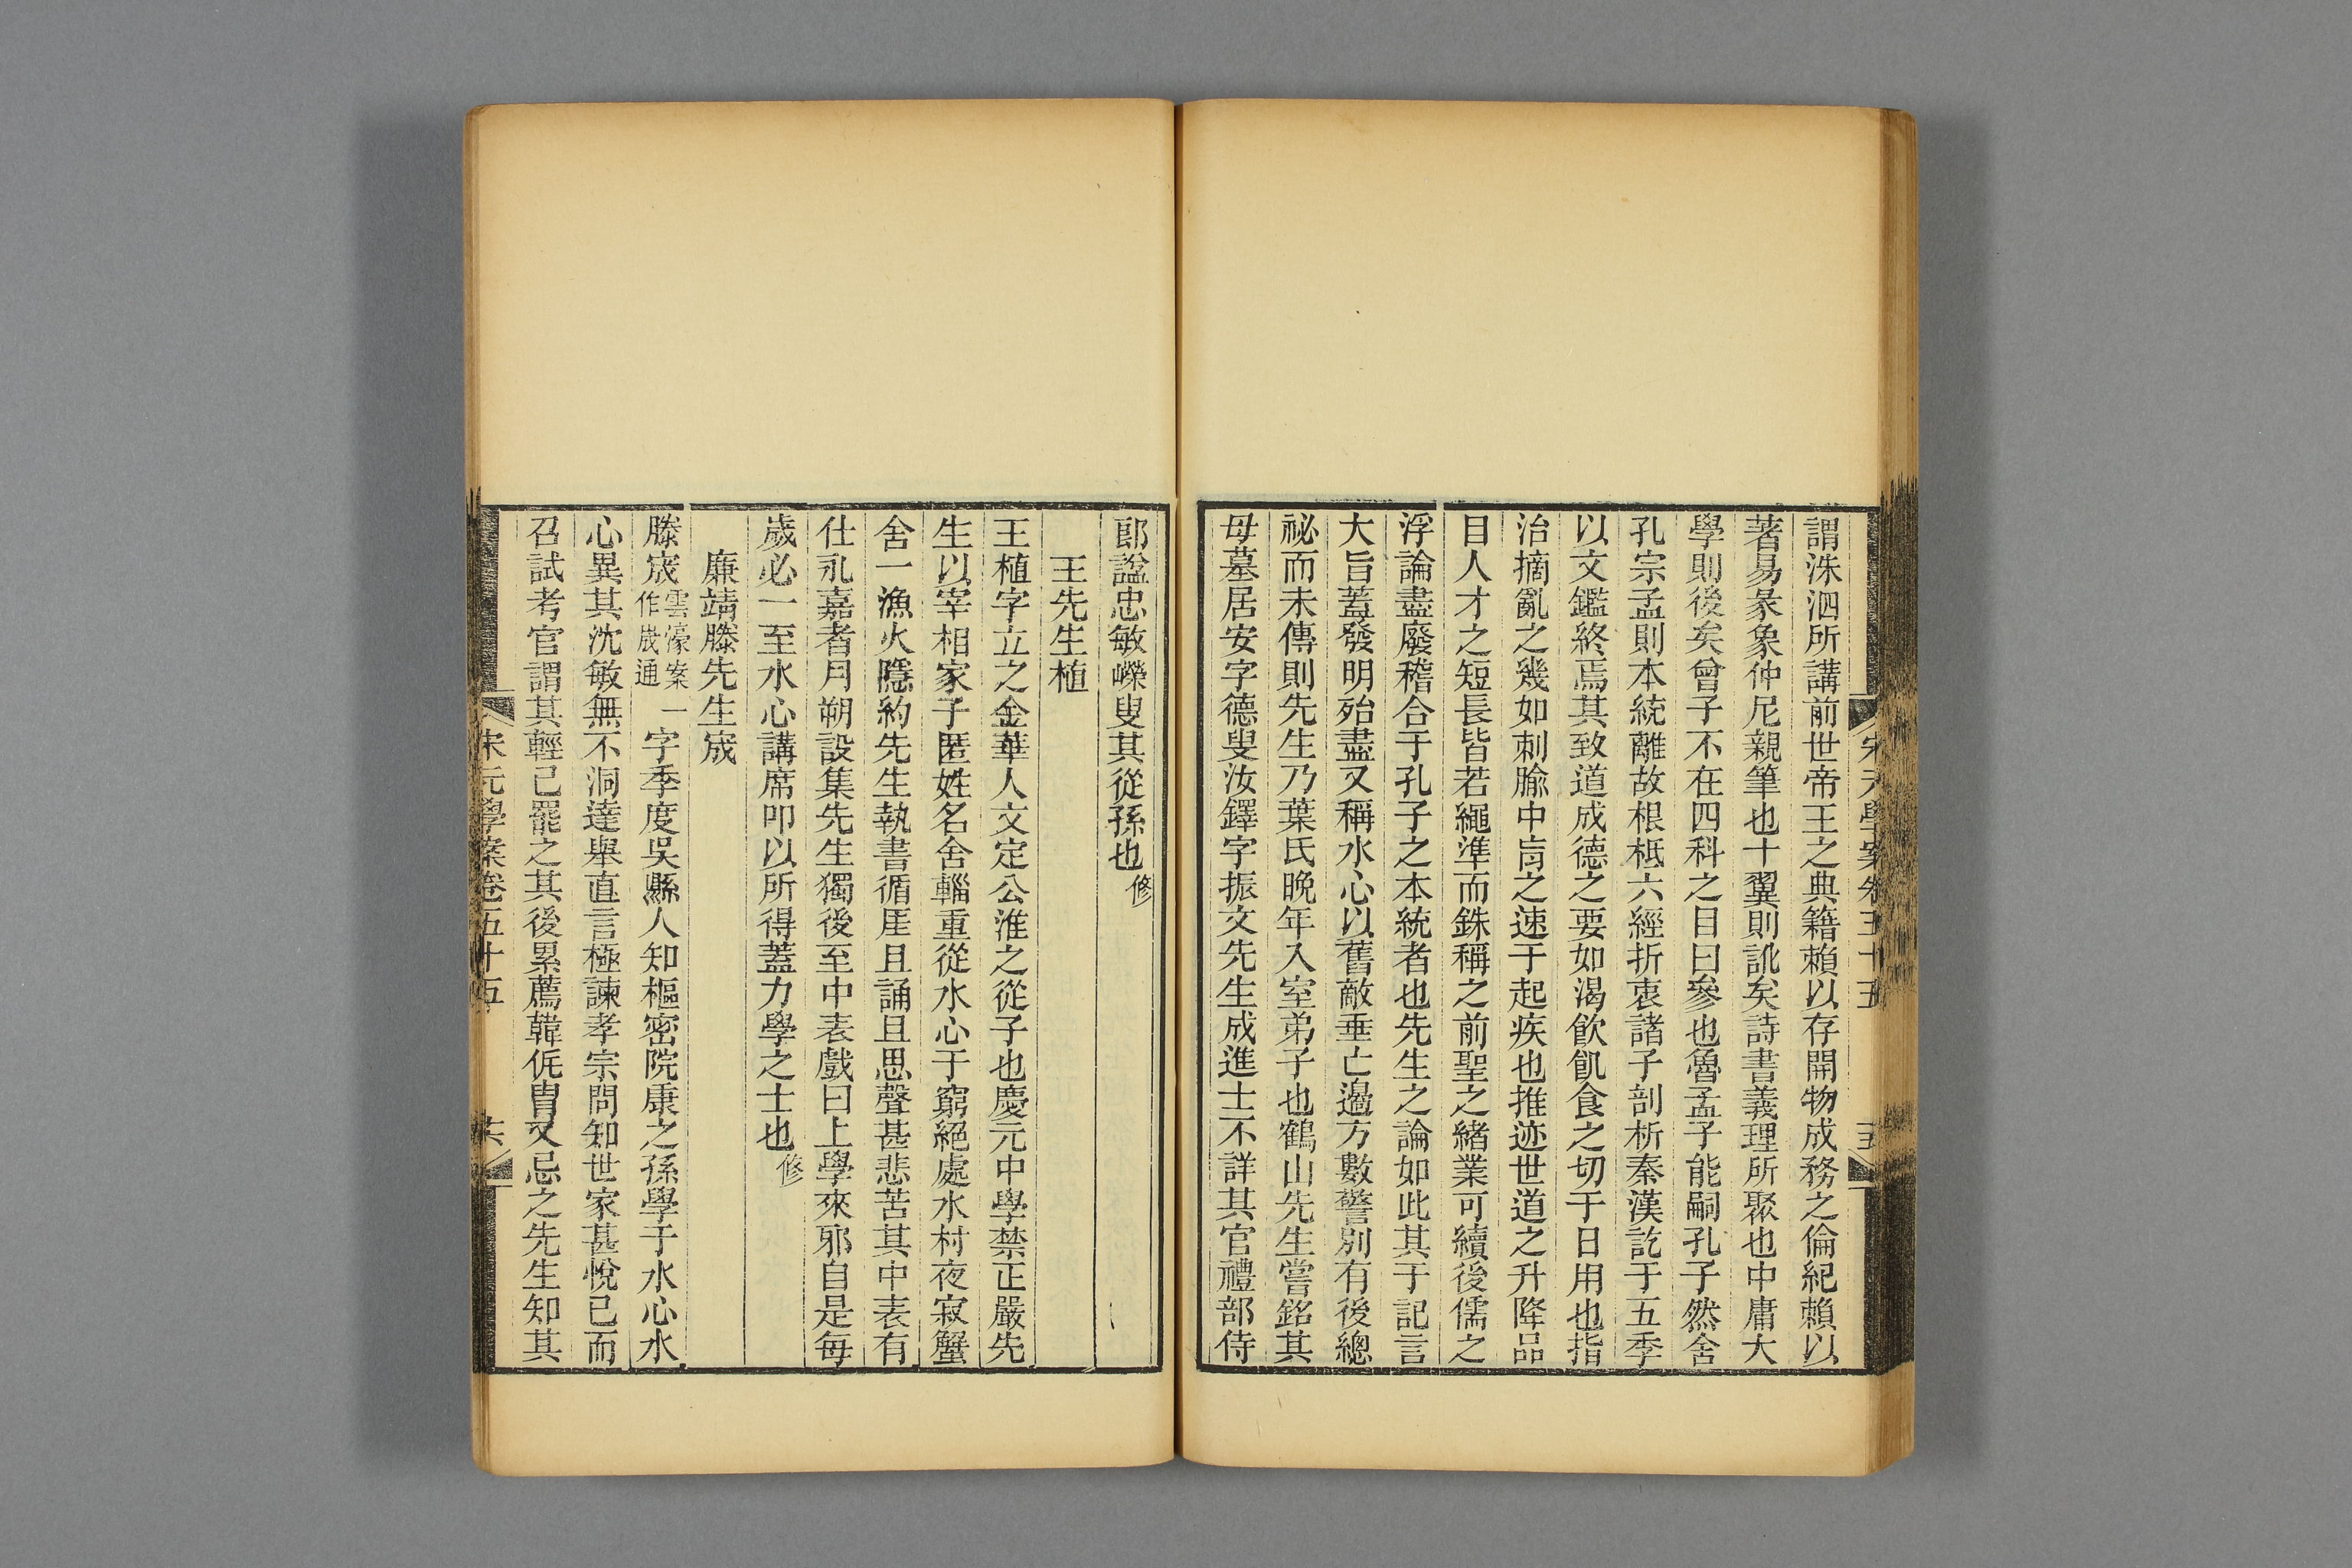 謂洙泗所講前世帝王之典籍賴以存開物成務之倫紀賴以
著易彖象仲尼親筆也十翼則訛矣詩書義理所聚也中庸大
學則後矣曾子不在四科之目曰參也魯孟子能嗣孔子然舍
孔宗孟則本統離故根柢六經折衷諸子剖析秦漢訖于五季
以文鑑終焉其致道成德之要如渴飲飢食之切于日用也指
治摘亂之幾如刺腧中肓之速于起疾也推迹世道之升降品
目人才之短長皆若繩準而銖稱之前聖之緒業可續後儒之
浮論盡廢稽合于孔子之本統者也先生之論如此其于記言
大旨蓋發明殆盡又稱水心以舊敵垂亡邊方數警別有後總
祕而未傳則先生乃葉氏晚年入室弟子也鶴山先生嘗銘其
母墓居安字德叟汝鐸字振文先生成進士不詳其官禮部侍
郎諡忠敏嶸叟其從孫也修
王先生植
王植字立之金華人文定公淮之從子也慶元中學禁正嚴先
生以宰相家子匿姓名舍輜重從水心于窮絕處水村夜寂蟹
舍一漁火隱約先生執書循厓且誦且思聲甚悲苦其中表有
仕永嘉者月朔設集先生獨後至中表戲曰上學來邪自是每
歲必一至水心講席叩以所得蓋力學之士也修
廉靖滕先生宬
滕宬雲濠案一作宬通字季度吳縣人知樞密院康之孫學于水心水
心異其沈敏無不洞達舉直言極諫孝宗問知世家甚悅已而
召試考官謂其輕己罷之其後累薦韓侂冑又忌之先生知其
宋元學案卷五十五